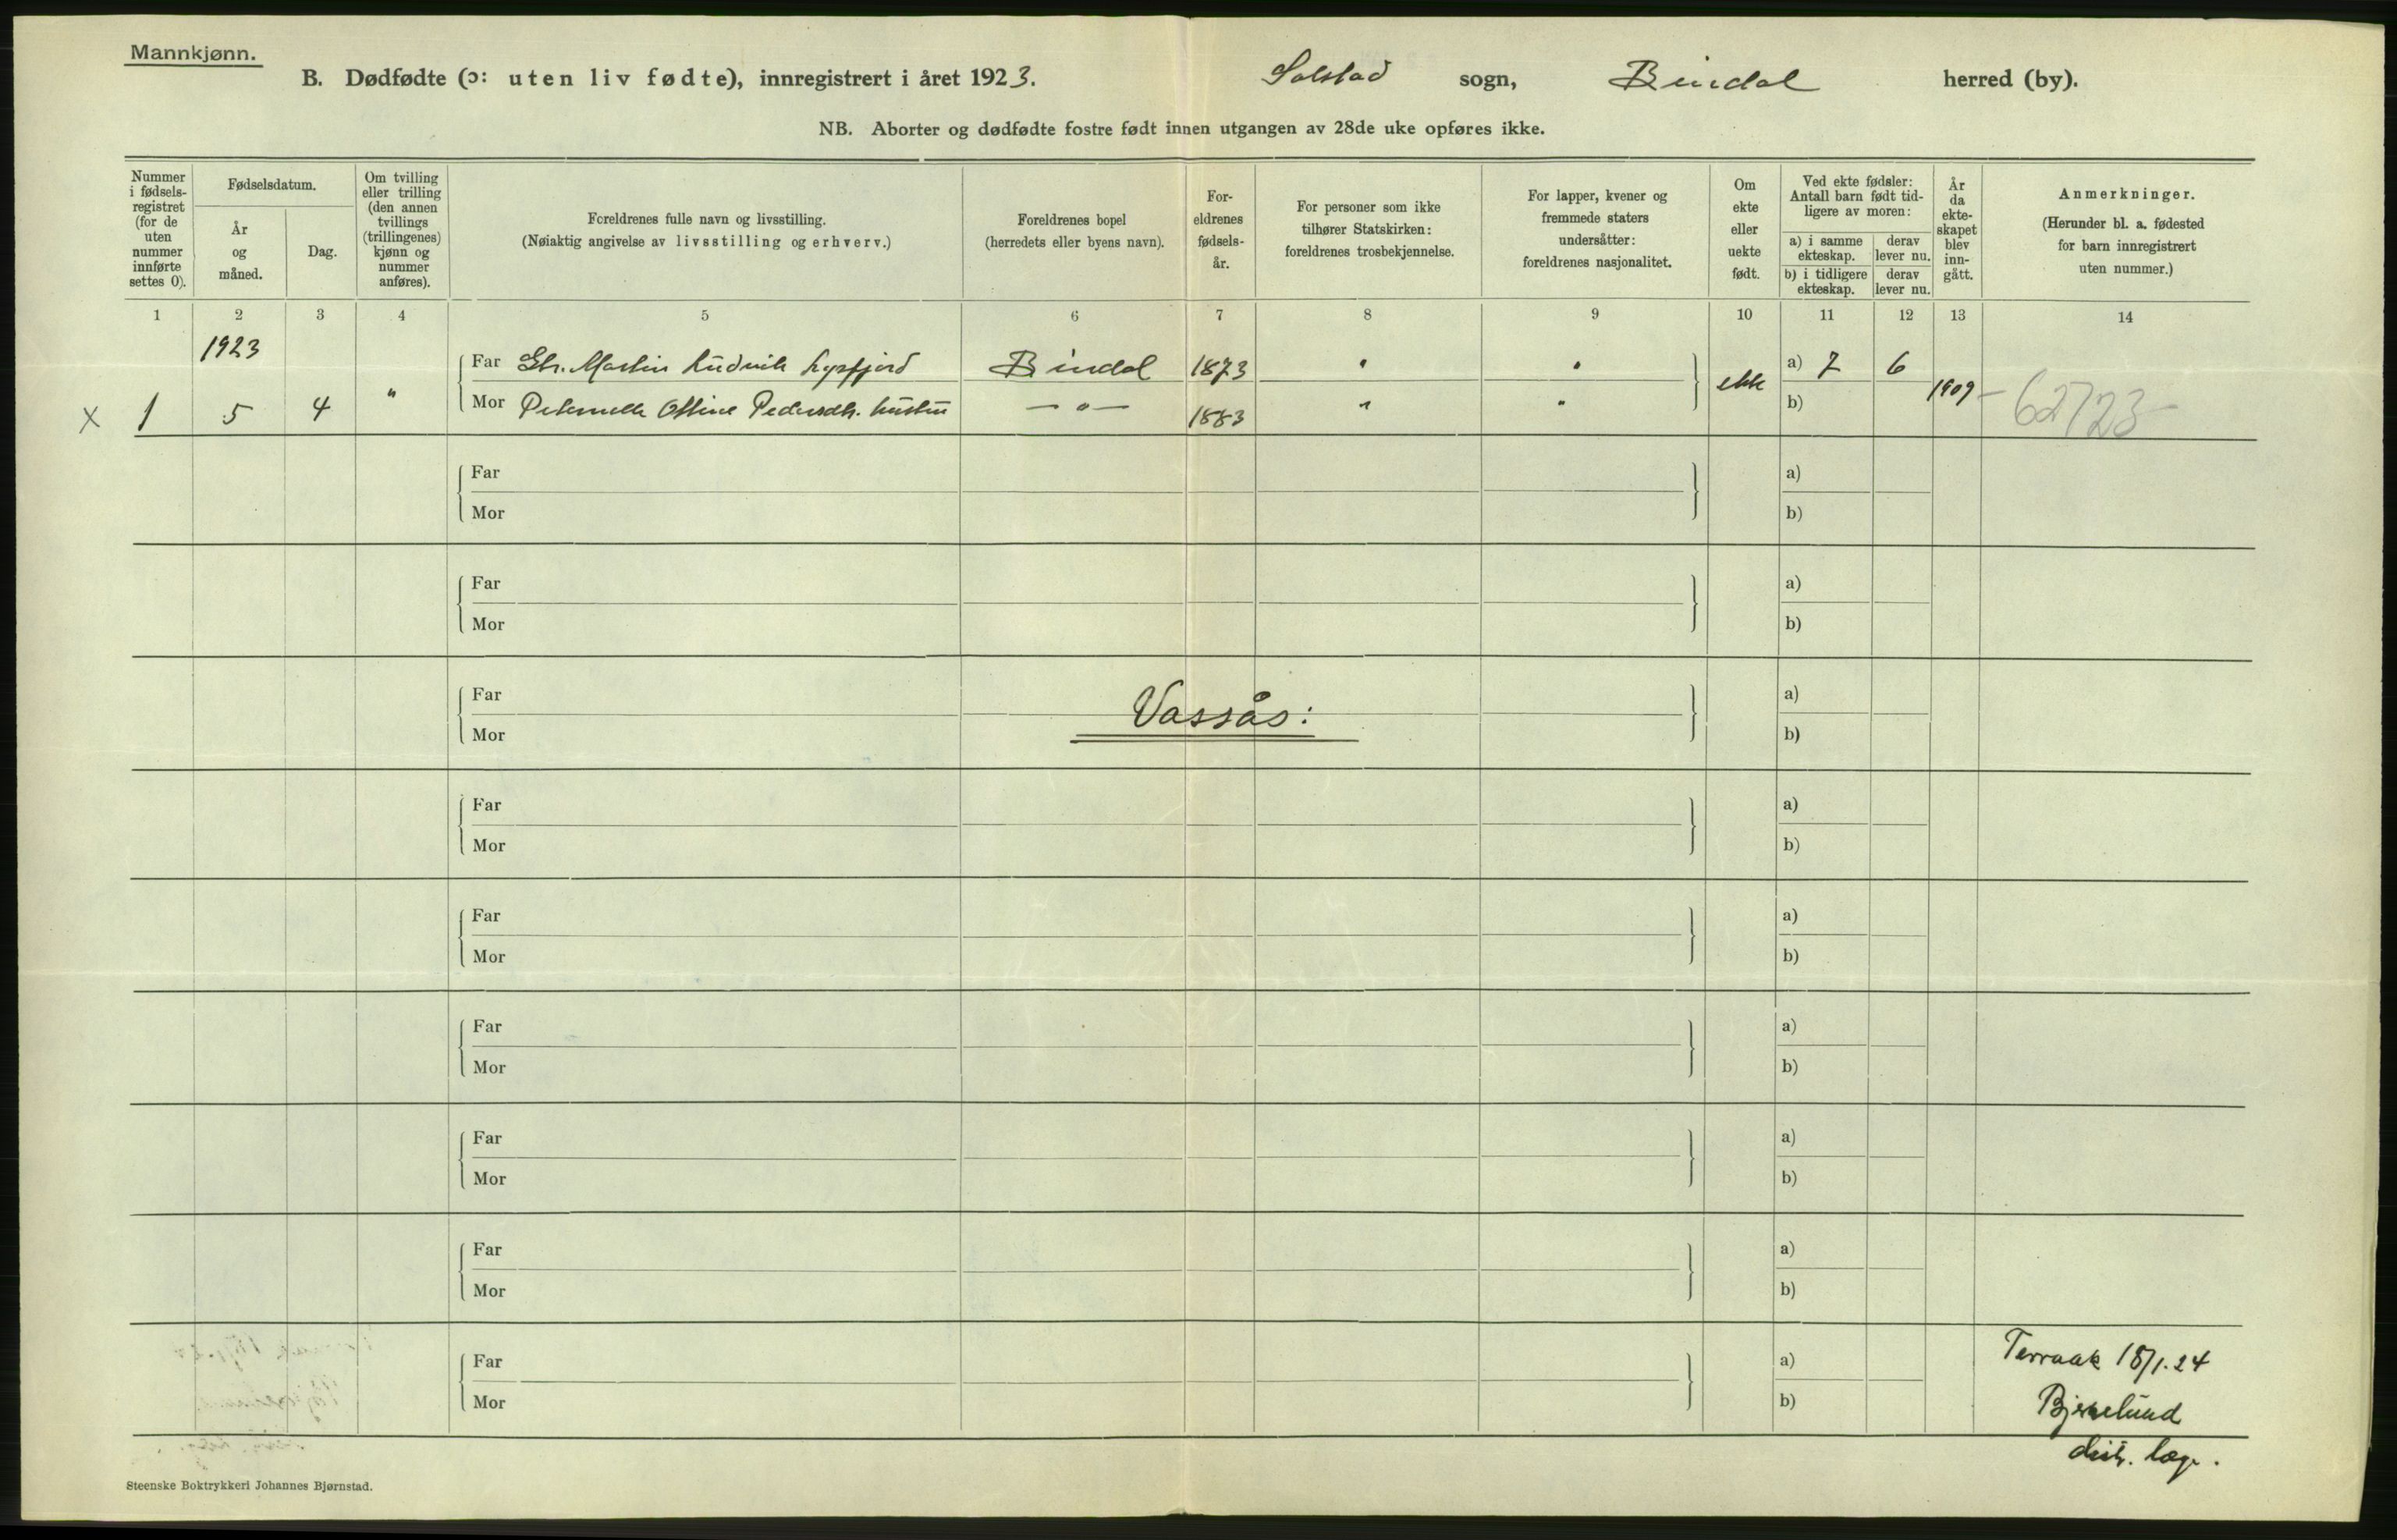 Mannkjønn.
B. Dødfødte (ɔ: uten liv fødte), innregistrert i året 1923. Solstad sogn, Bindal herred (by).
NB. Aborter og dødfødte fostre født innen utgangen av 28de uke opføres ikke.
Nummer i fødsels-registret (for de uten nummer innførte settes 0).
Fødselsdatum.
År og måned.
Dag.
Om tvilling eller trilling (den annen tvillings (trillingenes) kjønn og nummer anføres).
Foreldrenes fulle navn og livsstilling.
(Nøiaktig angivelse av livsstilling og erhverv.)
Foreldrenes bopel
(herredets eller byens navn).
For-eldrenes fødsels-år.
For personer som ikke tilhører Statskirken: foreldrenes trosbekjennelse.
For lapper, kvener og fremmede staters undersåtter: foreldrenes nasjonalitet.
Om ekte eller uekte født.
Ved ekte fødsler: Antall barn født tid-ligere av moren:
a) i samme ekteskap. derav lever nu.
b) i tidligere ekteskap. derav lever nu.
År da ekte-skapet blev inn-gått.
Anmerkninger.
(Herunder bl. a. fødested for barn innregistrert uten nummer.)
1 2 3 4 5 6 7 8 9 10 11 12 13 14
1923
Far Gbr. Martin Ludvik Lysfjord Bindal 1873 " " ekte a) 7 6 1909 - 62723 -
x 1 5 4 " Mor Peternelle Ottine Pedersdtr. hustru — " — 1883 " " b)
Far a)
Mor b)
Far a)
Mor b)
Far a)
Vassås:
Mor b)
Far a)
Mor b)
Far a)
Mor b)
Far a)
Mor b)
Far a)
Mor b)
Far a)
Mor b)
Far a)
Mor b)
Terraak 18/1.24
Bjerkelund
distr. læge.
Steenske Boktrykkeri Johannes Bjørnstad.